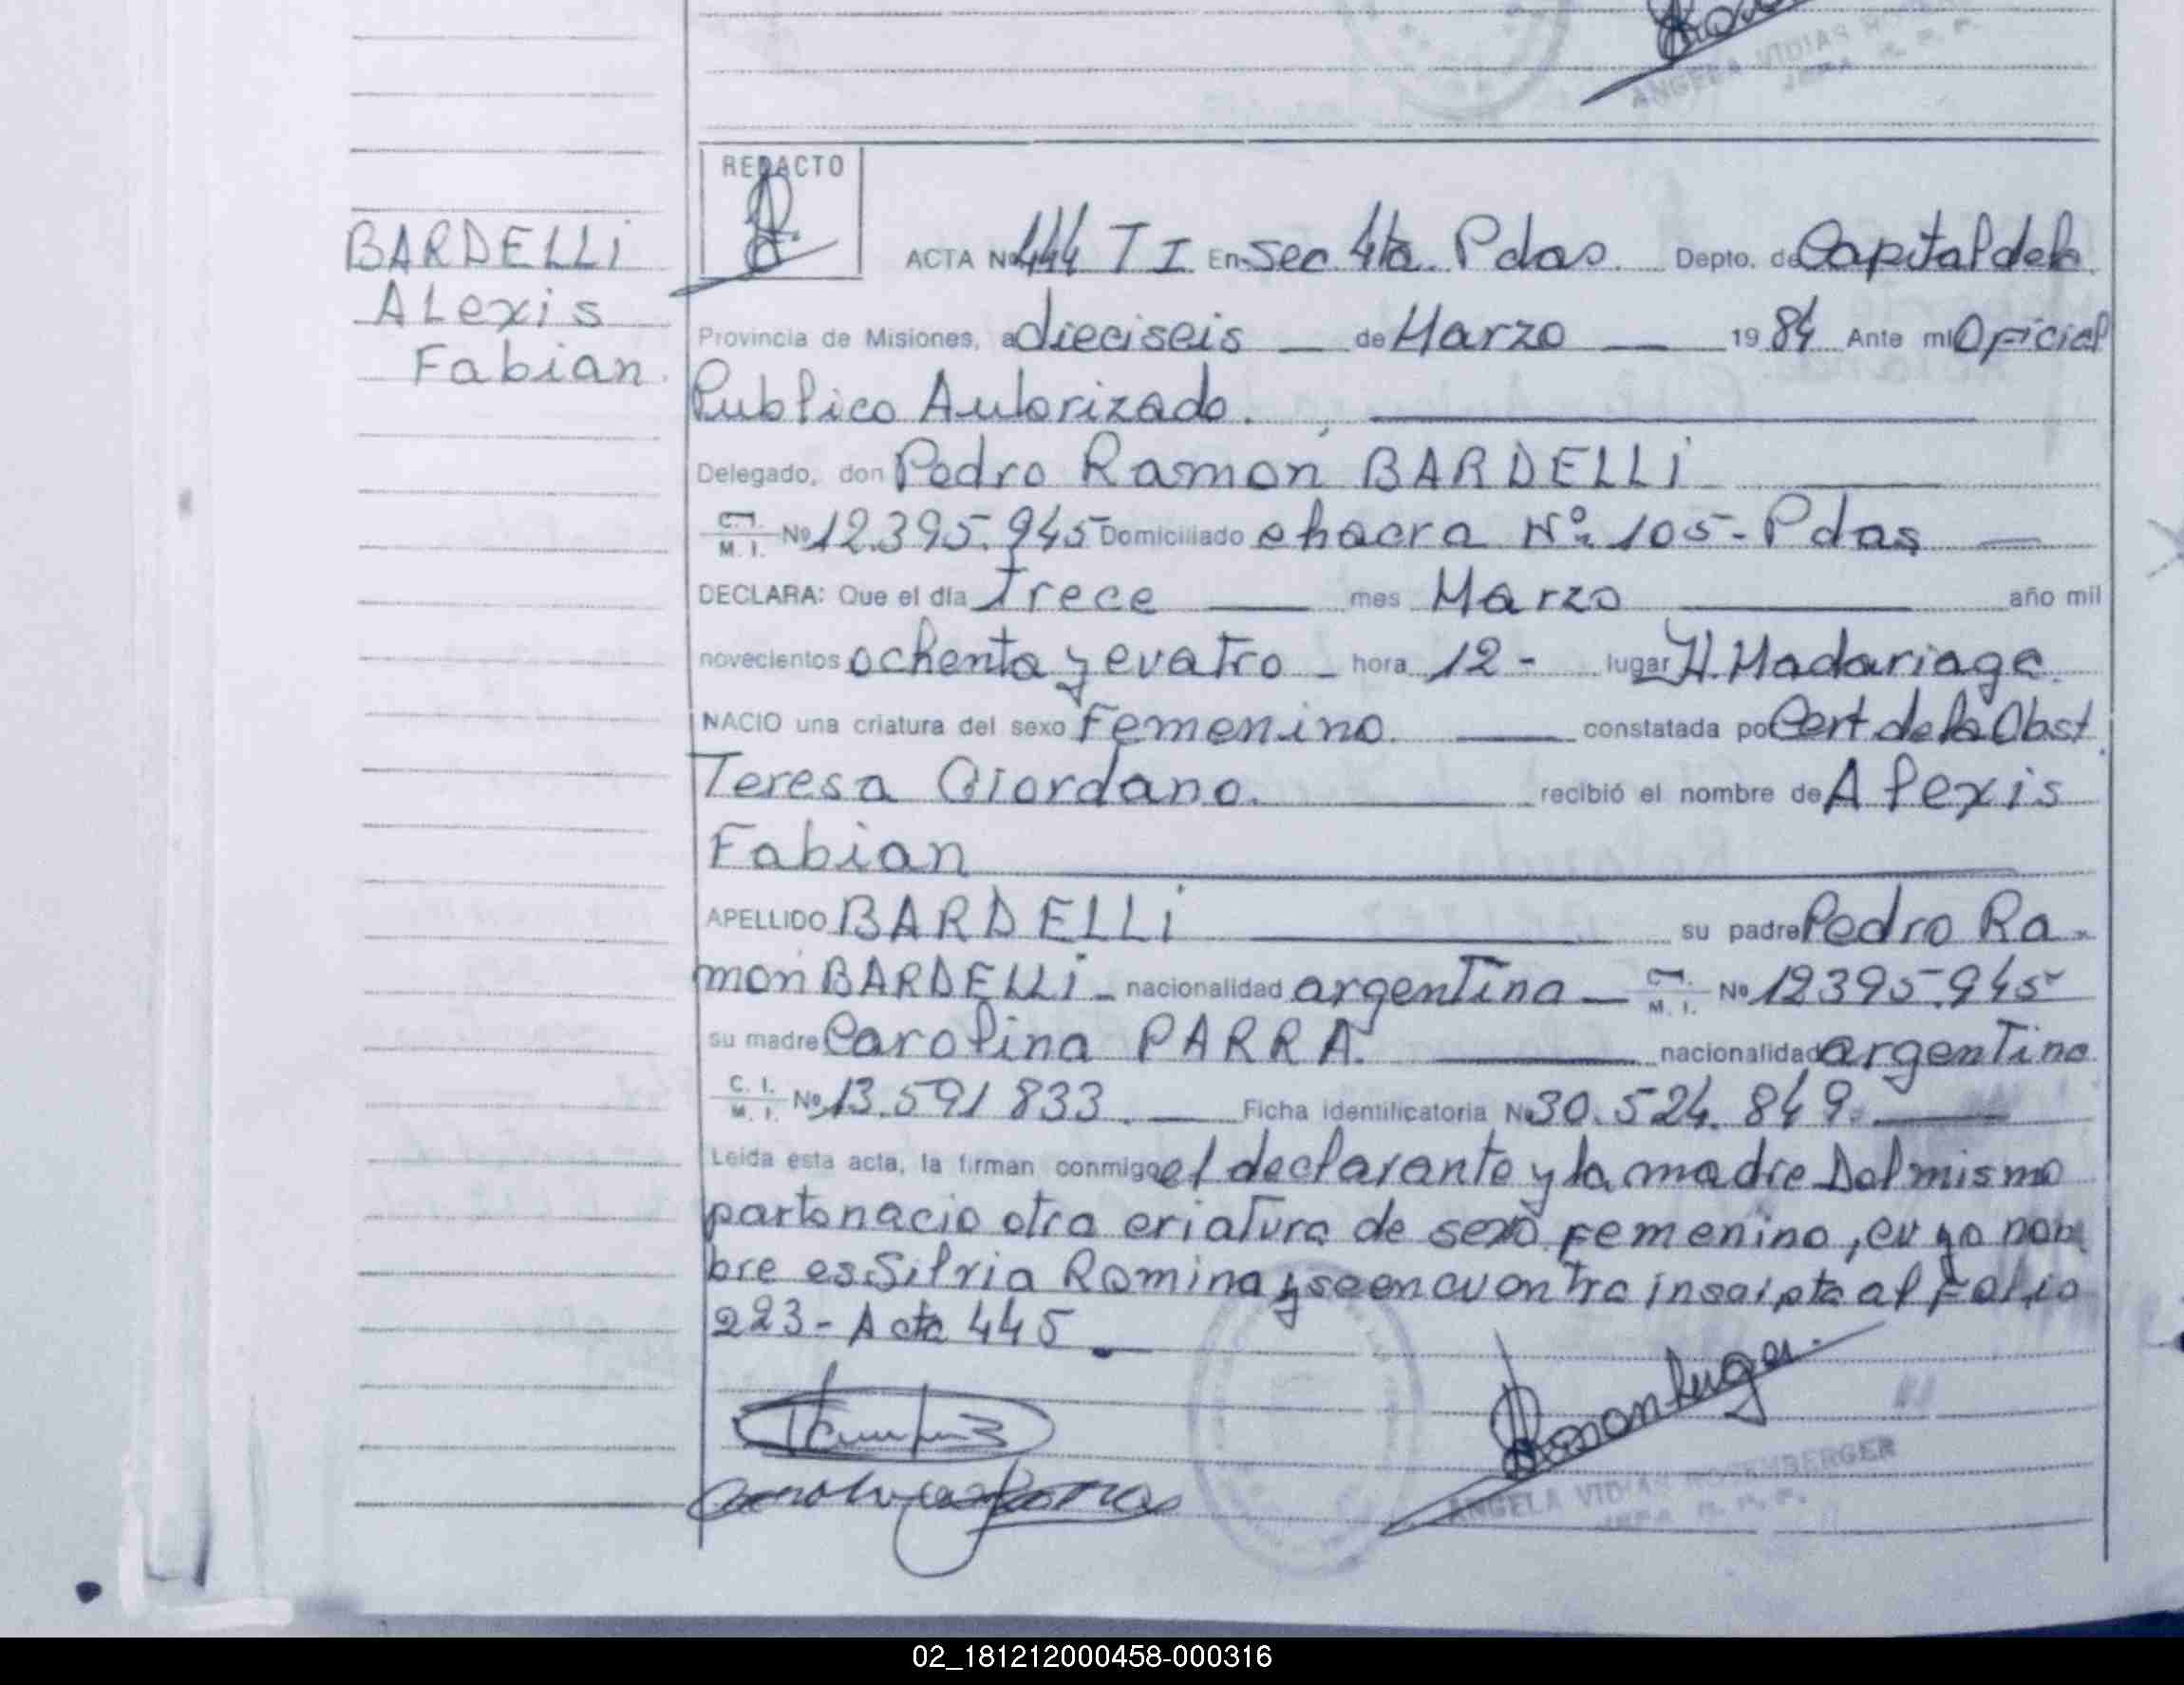 ANGELA VIDIAS
REDACTO
BARDELLi
ALexis
Fabian.
ACTA Nº 444 T I En Sec 4ta. Pdas. Depto. de Capital de la
Provincia de Misiones, a dieciseis de Marzo 1984 Ante mi Oficial
Publico Autorizado.
Delegado, don Pedro Ramon BARDELLi
C.I. M. I. Nº 12.395.945 Domiciliado chacra Nº 105 - Pdas
DECLARA: Que el día Trece mes Marzo año mil
novecientos ochenta y cuatro - hora 12 - lugar H. Madariaga.
NACIO una criatura del sexo Femenino. constatada por Cert de la Obst.
Teresa Giordano. recibió el nombre de Alexis
Fabian
APELLIDO BARDELLi su padre Pedro Ra-
mon BARDELLi - nacionalidad argentina - C.I. M. I. Nº 12395.945
su madre Carolina PARRA. nacionalidad argentina
C. I. M. I. Nº 13.591 833. Ficha identificatoria Nº 30.524.849.
Leída esta acta, la firman conmigo el declarante y la madre Del mismo
parto nacio otra criatura de sexo femenino, cuyo nom
bre es Silvia Romina y se encuentra inscipta al Folio
223 - Acta 445.
ANGELA VIDIAS ROSEMBERGER
JEFA R. P. P.
02_181212000458-000316